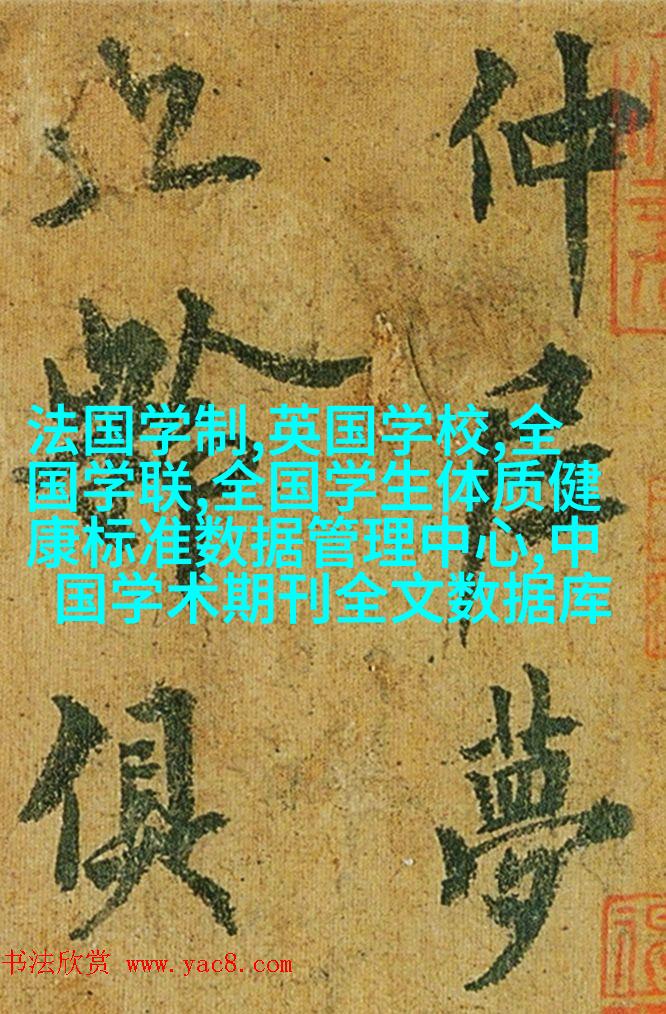 仲尼夢
齡俱
法国学制,英国学校,全
国学联,全国学生体质健
康标准数据管理中心,中
国学术期刊全文数据库
书法欣赏 www.yac8.com